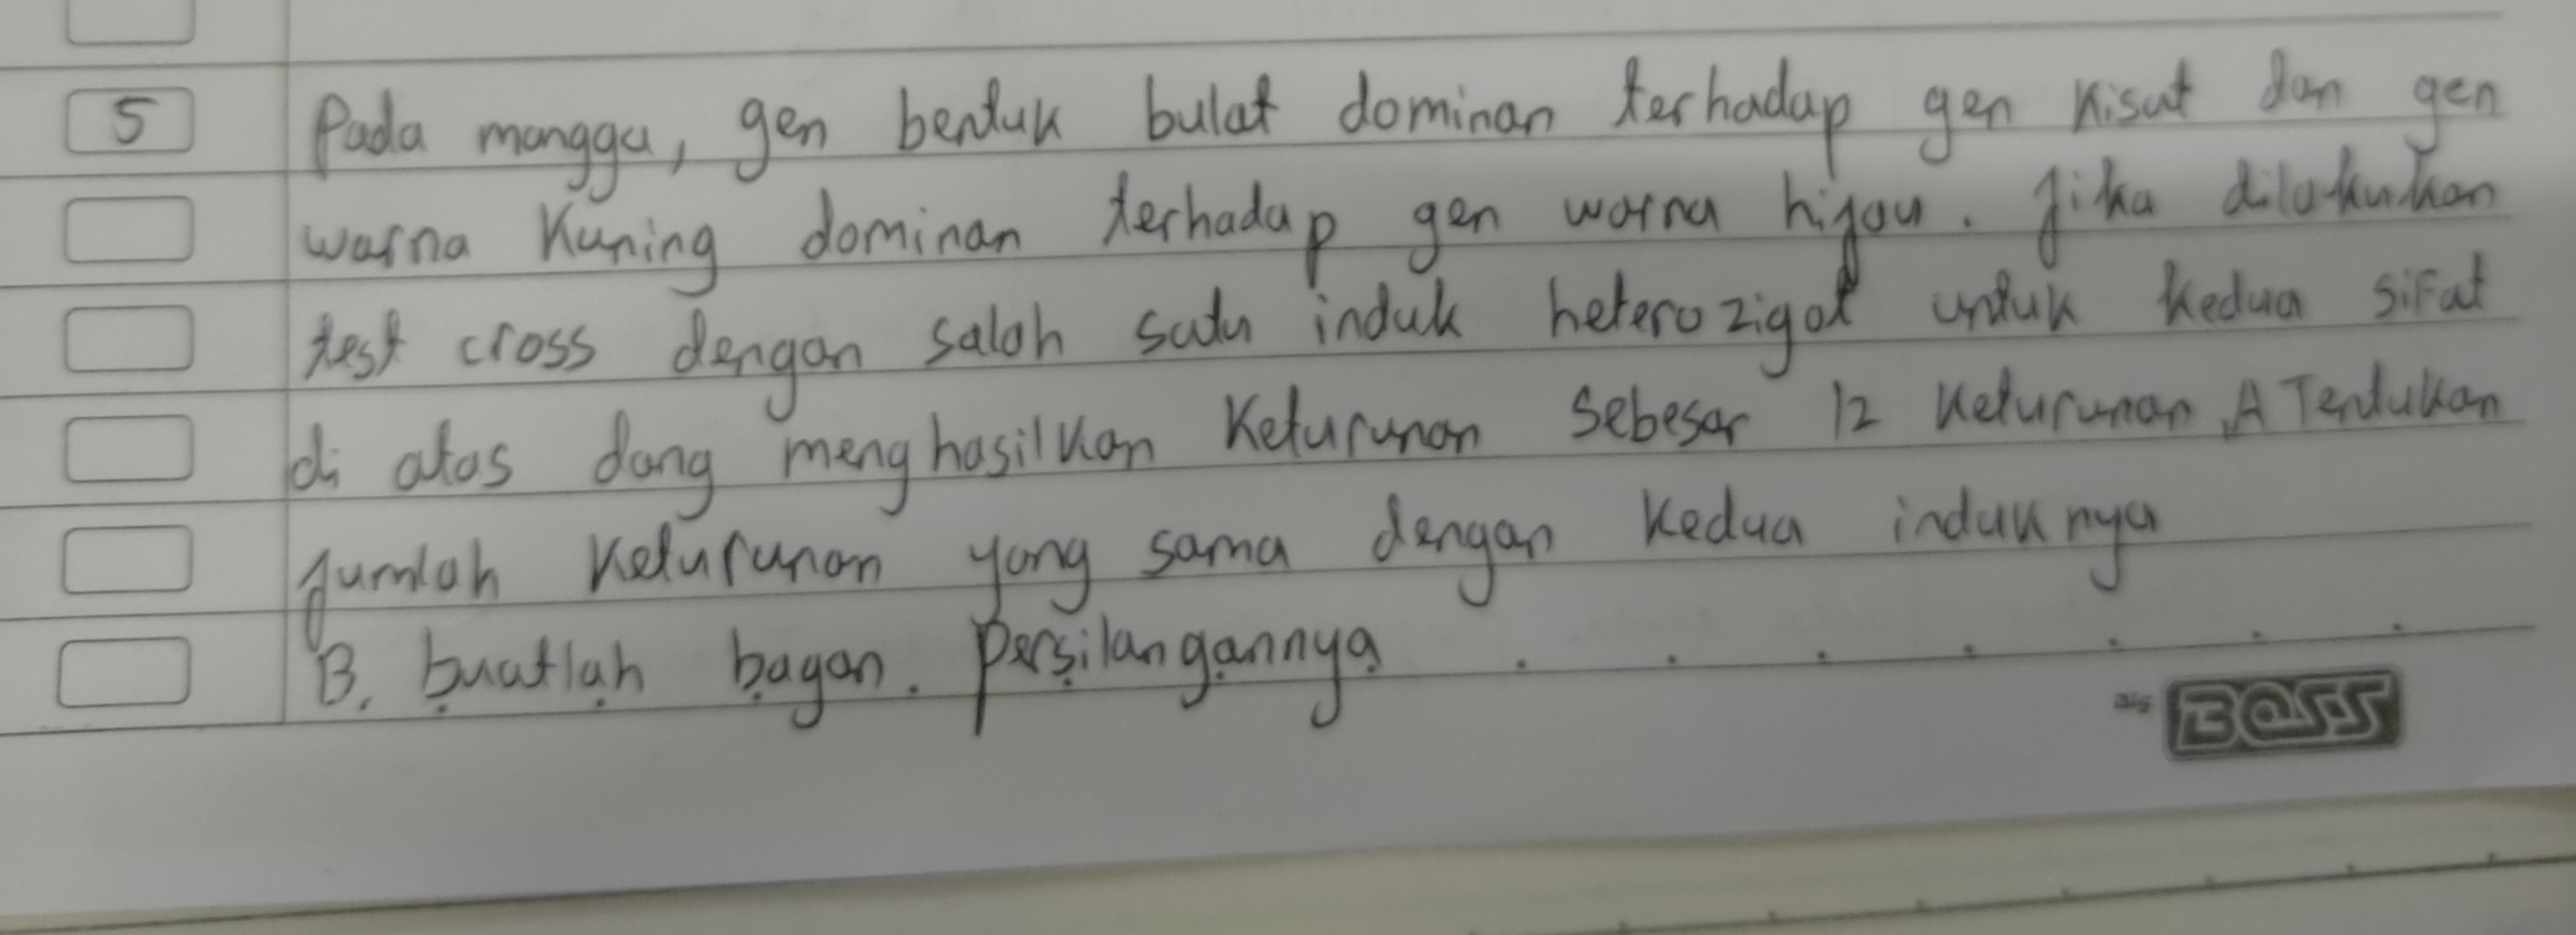 5 Pada mangga, gen bentuk bulat dominan terhadap gen kisut dan gen
warna kuning dominan terhadap gen warna hijau. Jika dilakukan
test cross dengan salah satu induk heterozigot untuk kedua sifat
di atas dang menghasilkan keturunan sebesar 12 keturunan, A Tentukan
Jumlah keturunan yang sama dengan kedua induknya
B. buatlah bagan. persilangannya
BIG BOSS